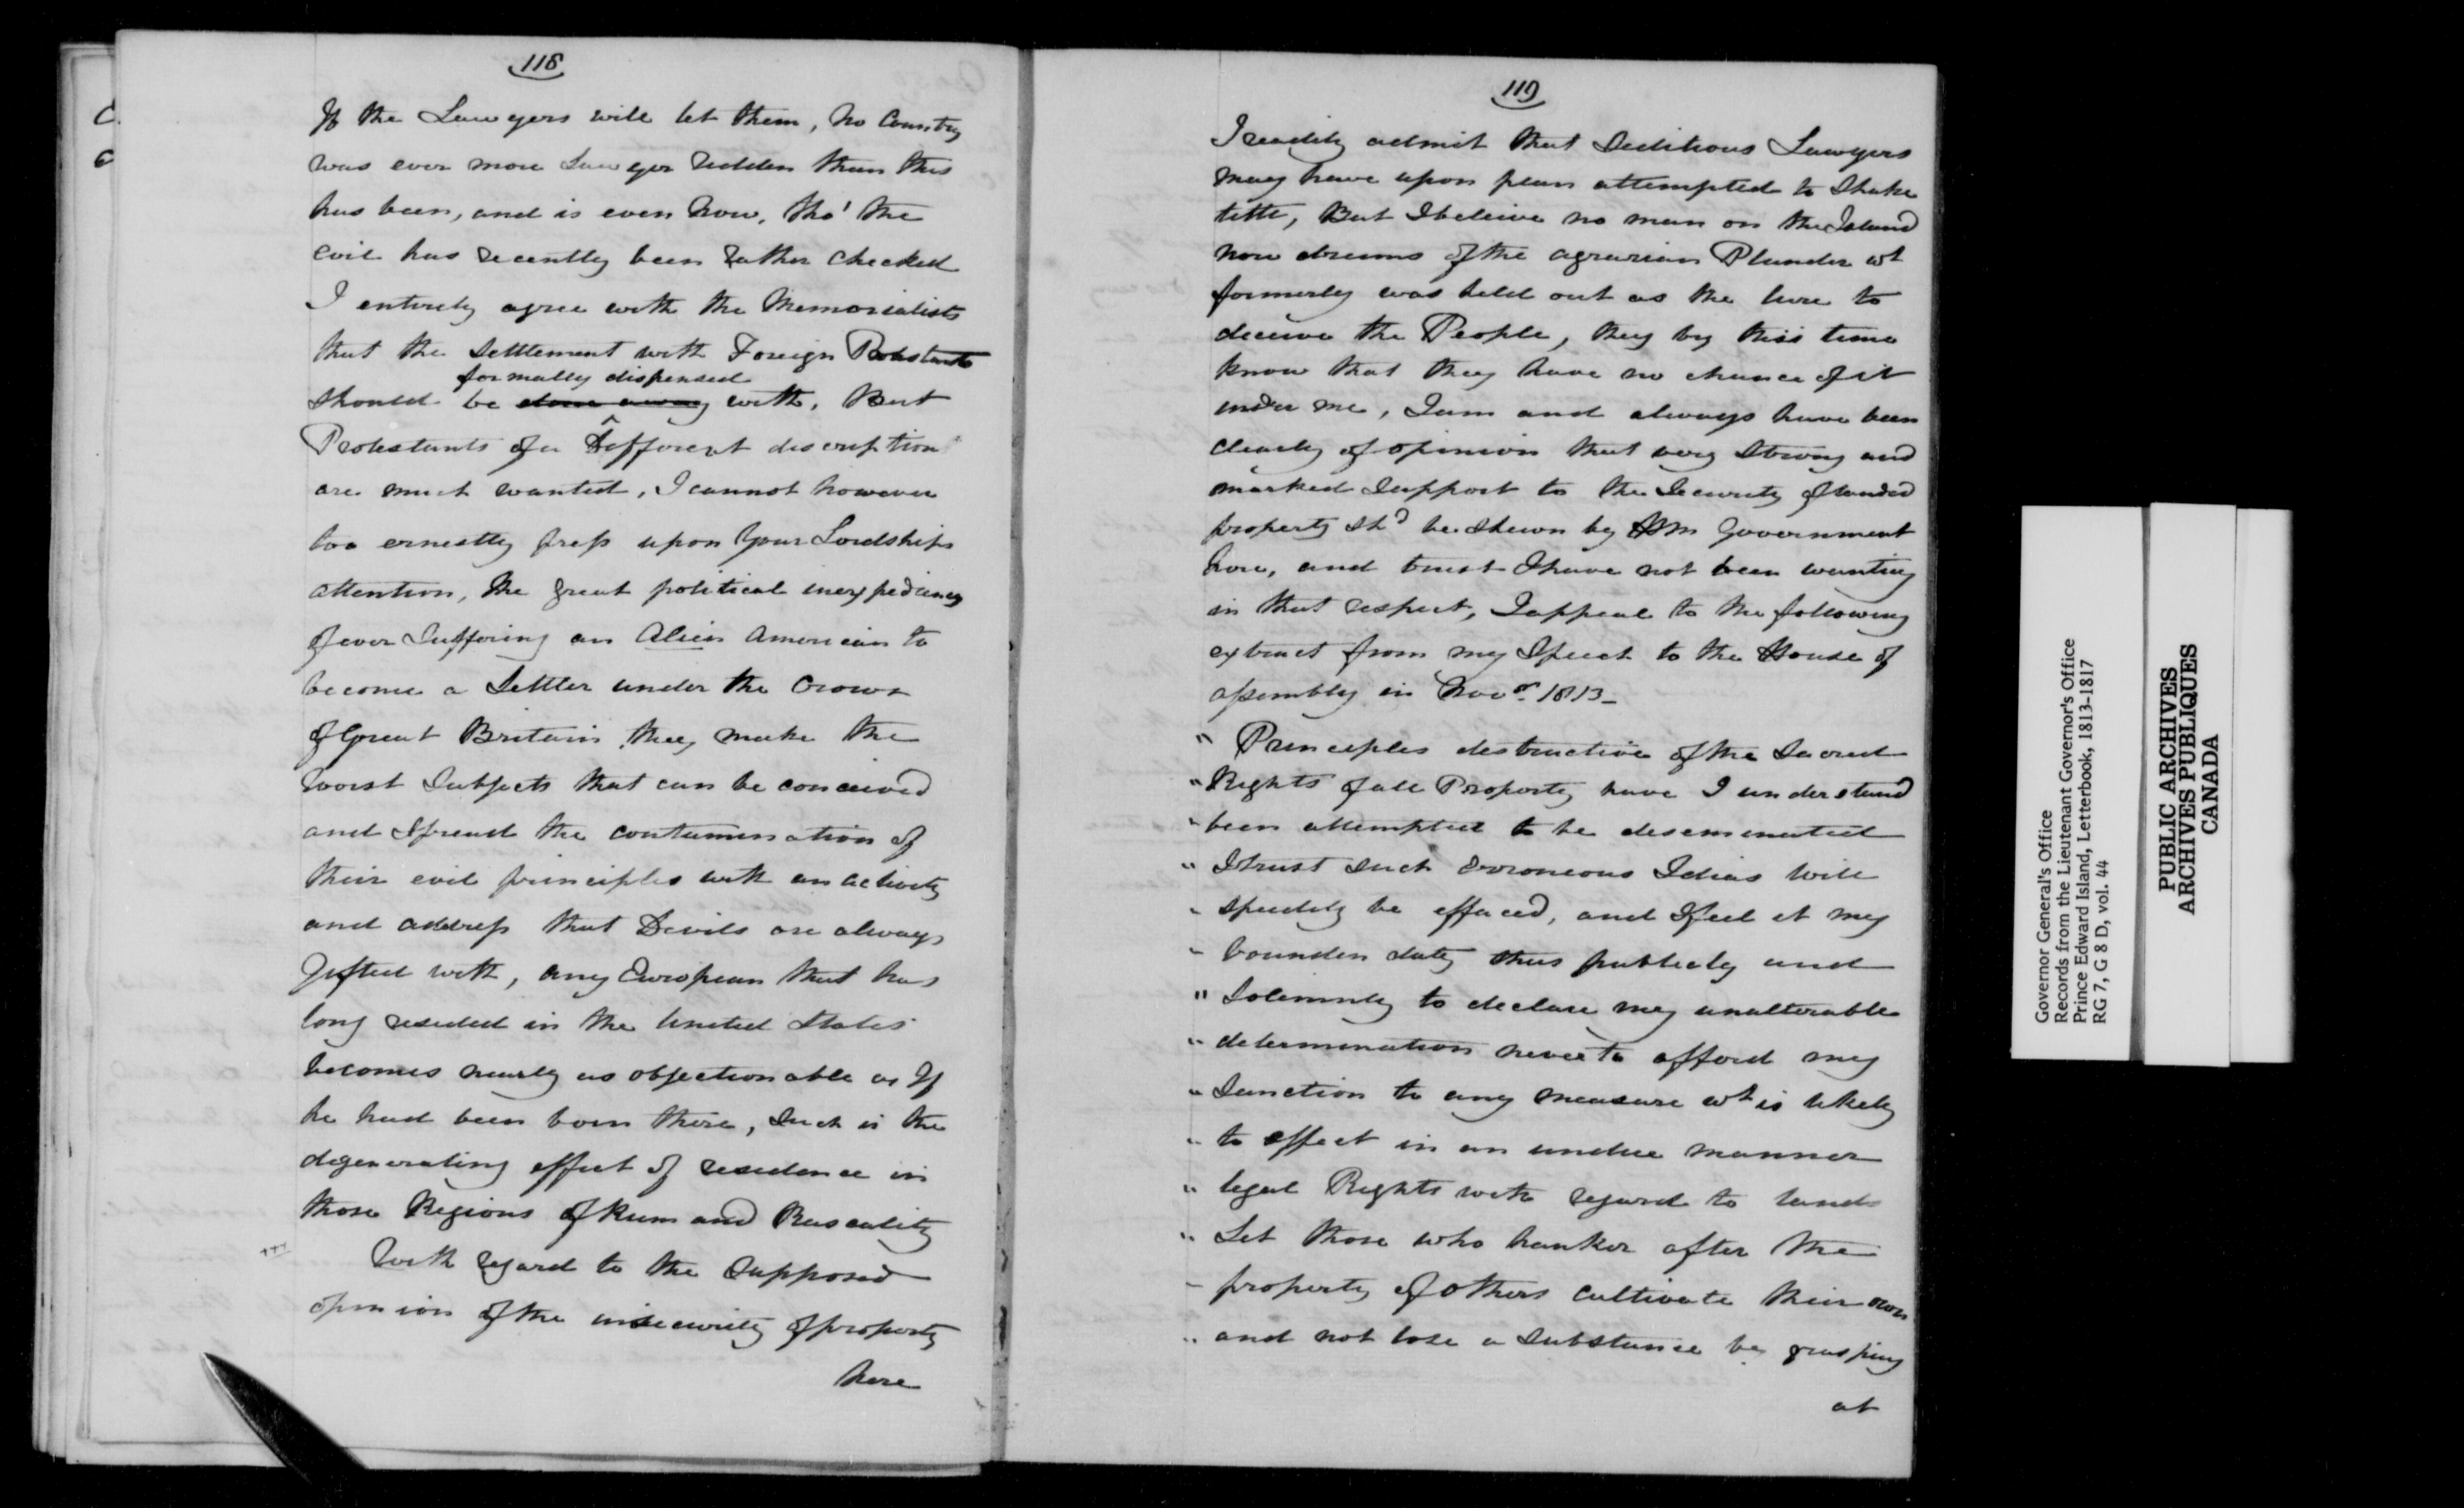 118
If the Lawyers will let them, No Country
was ever more Lawyer ridden than this
has been, and is even Now, tho' the
evil has recently been rather checked
I entirely agree with the Memorialists
that the Settlement with Foreign Protestants
formally dispensed
should be done away with, But
Protestants of a Different discription
are much wanted, I cannot however
too ernestly press upon Your Lordships
attention, the great political inexpediency
of ever Suffering an Alien American to
become a Settler under the Crown
of Great Britain they make the
worst Subjects that can be conceived
and spread the contamination of
their evil principles with an activity
and address that Devils are always
Gifted with, any European that has
long resided in the United States
becomes nearly as objectionable as If
he had been born there, Such is the
degenerating effect of residence in
those Regions of Rum and Rascality
+++ With regard to the Supposed
opinion of the insecurity of property
here
119
I readily admit that Seditious Lawyers
may have upon plan attempted to Shake
title, But I beleive no man on the Island
now dreams of the agrarian Plunder wh
formerly was held out as the lure to
deceive the People, they by this time
know that they have no chance of it
under me, I am and always have been
clearly of opinion that very Strong and
marked Support to the Security of landed
property shd be shewn by Govvernment
here, and trust I have not been wanting
in that respect, I appeal to the following
extract from my Speech to the House of
assembly in Novr 1813_
" Principles destructive of the Sacred
" Rights of all Property have I understand
" been attempted to be deseminated
" I trust Such erroneous Ideas will
" speedily be effaced, and I feel it my
" bounden duty thus publicly and
" Solemnly to declare my unalterable
" determination never to afford my
" Sanction to any measure wh is likely
" to effect in an undue manner
" legal Rights with regard to lands
" Let those who hanker after the
" property of others cultivate their own
" and not lose a Substance by grasping
at
Governor General's Office
Records from the Lieutenant Governor's Office
Prince Edward Island, Letterbook, 1813-1817
RG 7, G 8 D, vol. 44
PUBLIC ARCHIVES
ARCHIVES PUBLIQUES
CANADA